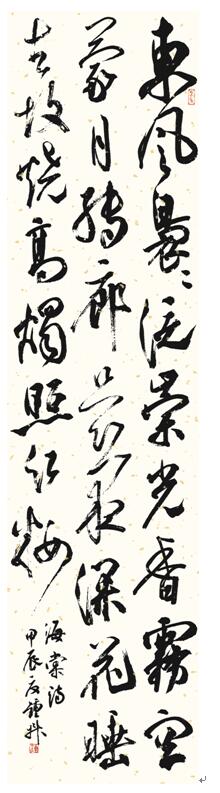 東風裊々泛崇光香霧空
蒙月轉廊只恐夜深花睡
去故燒高燭照紅妝
海棠詩
甲辰夏